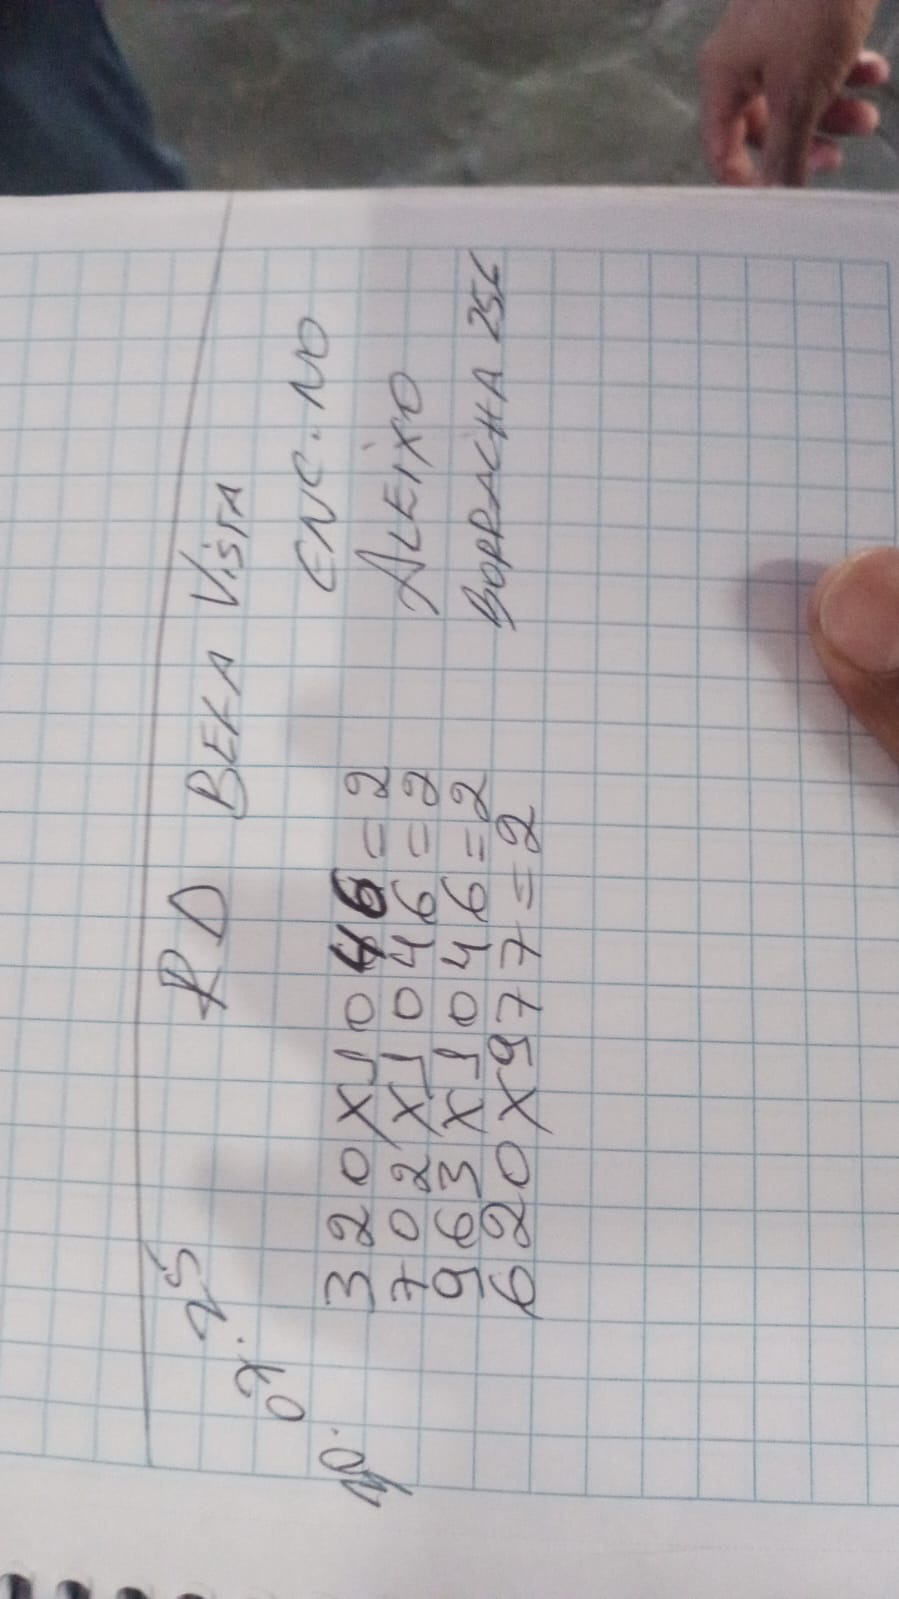 07.25
RD BELA VISTA
320X1046=2
702X1046=2
963X1046=2
620X977=2
ENC. NO
ALEIXO
BORRACHA 256